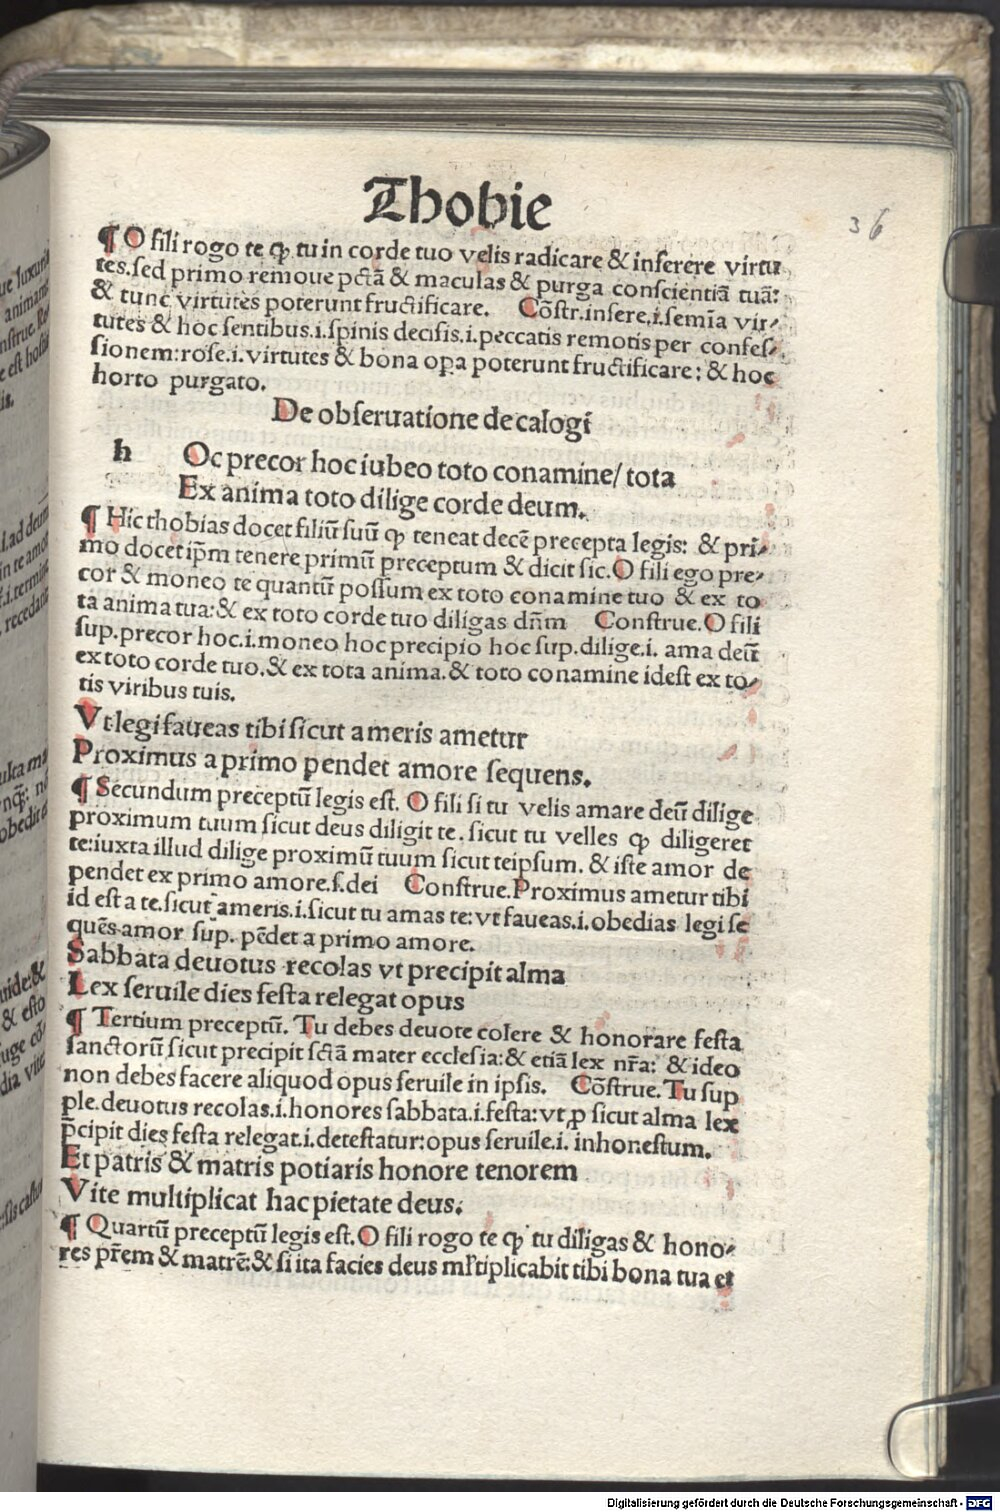 Thobie
36
¶ O fili rogo te ꝙ tu in corde tuo velis radicare & inserere virtu
tes.sed primo remoue pctā & maculas & purga conscientiā tuā:
& tunc virtutes poterunt fructificare. Cōstr.insere.i.semīa vir⸗
tutes & hoc sentibus.i.spinis decisis.i.peccatis remotis per confes⸗
sionem:rose.i.virtutes & bona opa poterunt fructificare: & hoc
horto purgato.
De obseruatione decalogi
h Oc precor hoc iubeo toto conamine/ tota
Ex anima toto dilige corde deum.
¶ Hic thobias docet filiū suū ꝙ teneat decē precepta legis: & pri⸗
mo docet ip̄m tenere primū preceptum & dicit sic.O fili ego pre⸗
cor & moneo te quantū possum ex toto conamine tuo & ex to
ta anima tua:& ex toto corde tuo diligas dn̄m Construe.O fili
sup.precor hoc.i.moneo hoc precipio hoc sup.dilige.i. ama deū
ex toto corde tuo.& ex tota anima.& toto conamine idest ex to⸗
tis viribus tuis.
Vt legi faueas tibi sicut ameris ametur
Proximus a primo pendet amore sequens.
¶ Secundum preceptū legis est. O fili si tu velis amare deū dilige
proximum tuum sicut deus diligit te. sicut tu velles ꝙ diligeret
te:iuxta illud dilige proximū tuum sicut teipsum. & iste amor de
pendet ex primo amore.s.dei Construe.Proximus ametur tibi
id est a te.sicut ameris.i.sicut tu amas te:vt faueas.i.obedias legi se
quēs amor sup. pēdet a primo amore.
Sabbata deuotus recolas vt precipit alma
Lex seruile dies festa relegat opus
¶ Tertium preceptū. Tu debes deuote colere & honorare festa
sanctorū sicut precipit sctā mater ecclesia:& etiā lex nr̄a: & ideo
non debes facere aliquod opus seruile in ipsis. Cōstrue.Tu sup
ple.deuotus recolas.i.honores sabbata.i.festa:vt ꝓ sicut alma lex
p̄cipit dies festa relegat.i.detestatur:opus seruile.i. inhonestum.
Et patris & matris potiaris honore tenorem
Vite multiplicat hac pietate deus.
¶ Quartū preceptū legis est.O fili rogo te ꝙ tu diligas & hono⸗
res pr̄em & matrē:& si ita facies deus ml̄tiplicabit tibi bona tua et
Digitalisierung gefördert durch die Deutsche Forschungsgemeinschaft - DFG